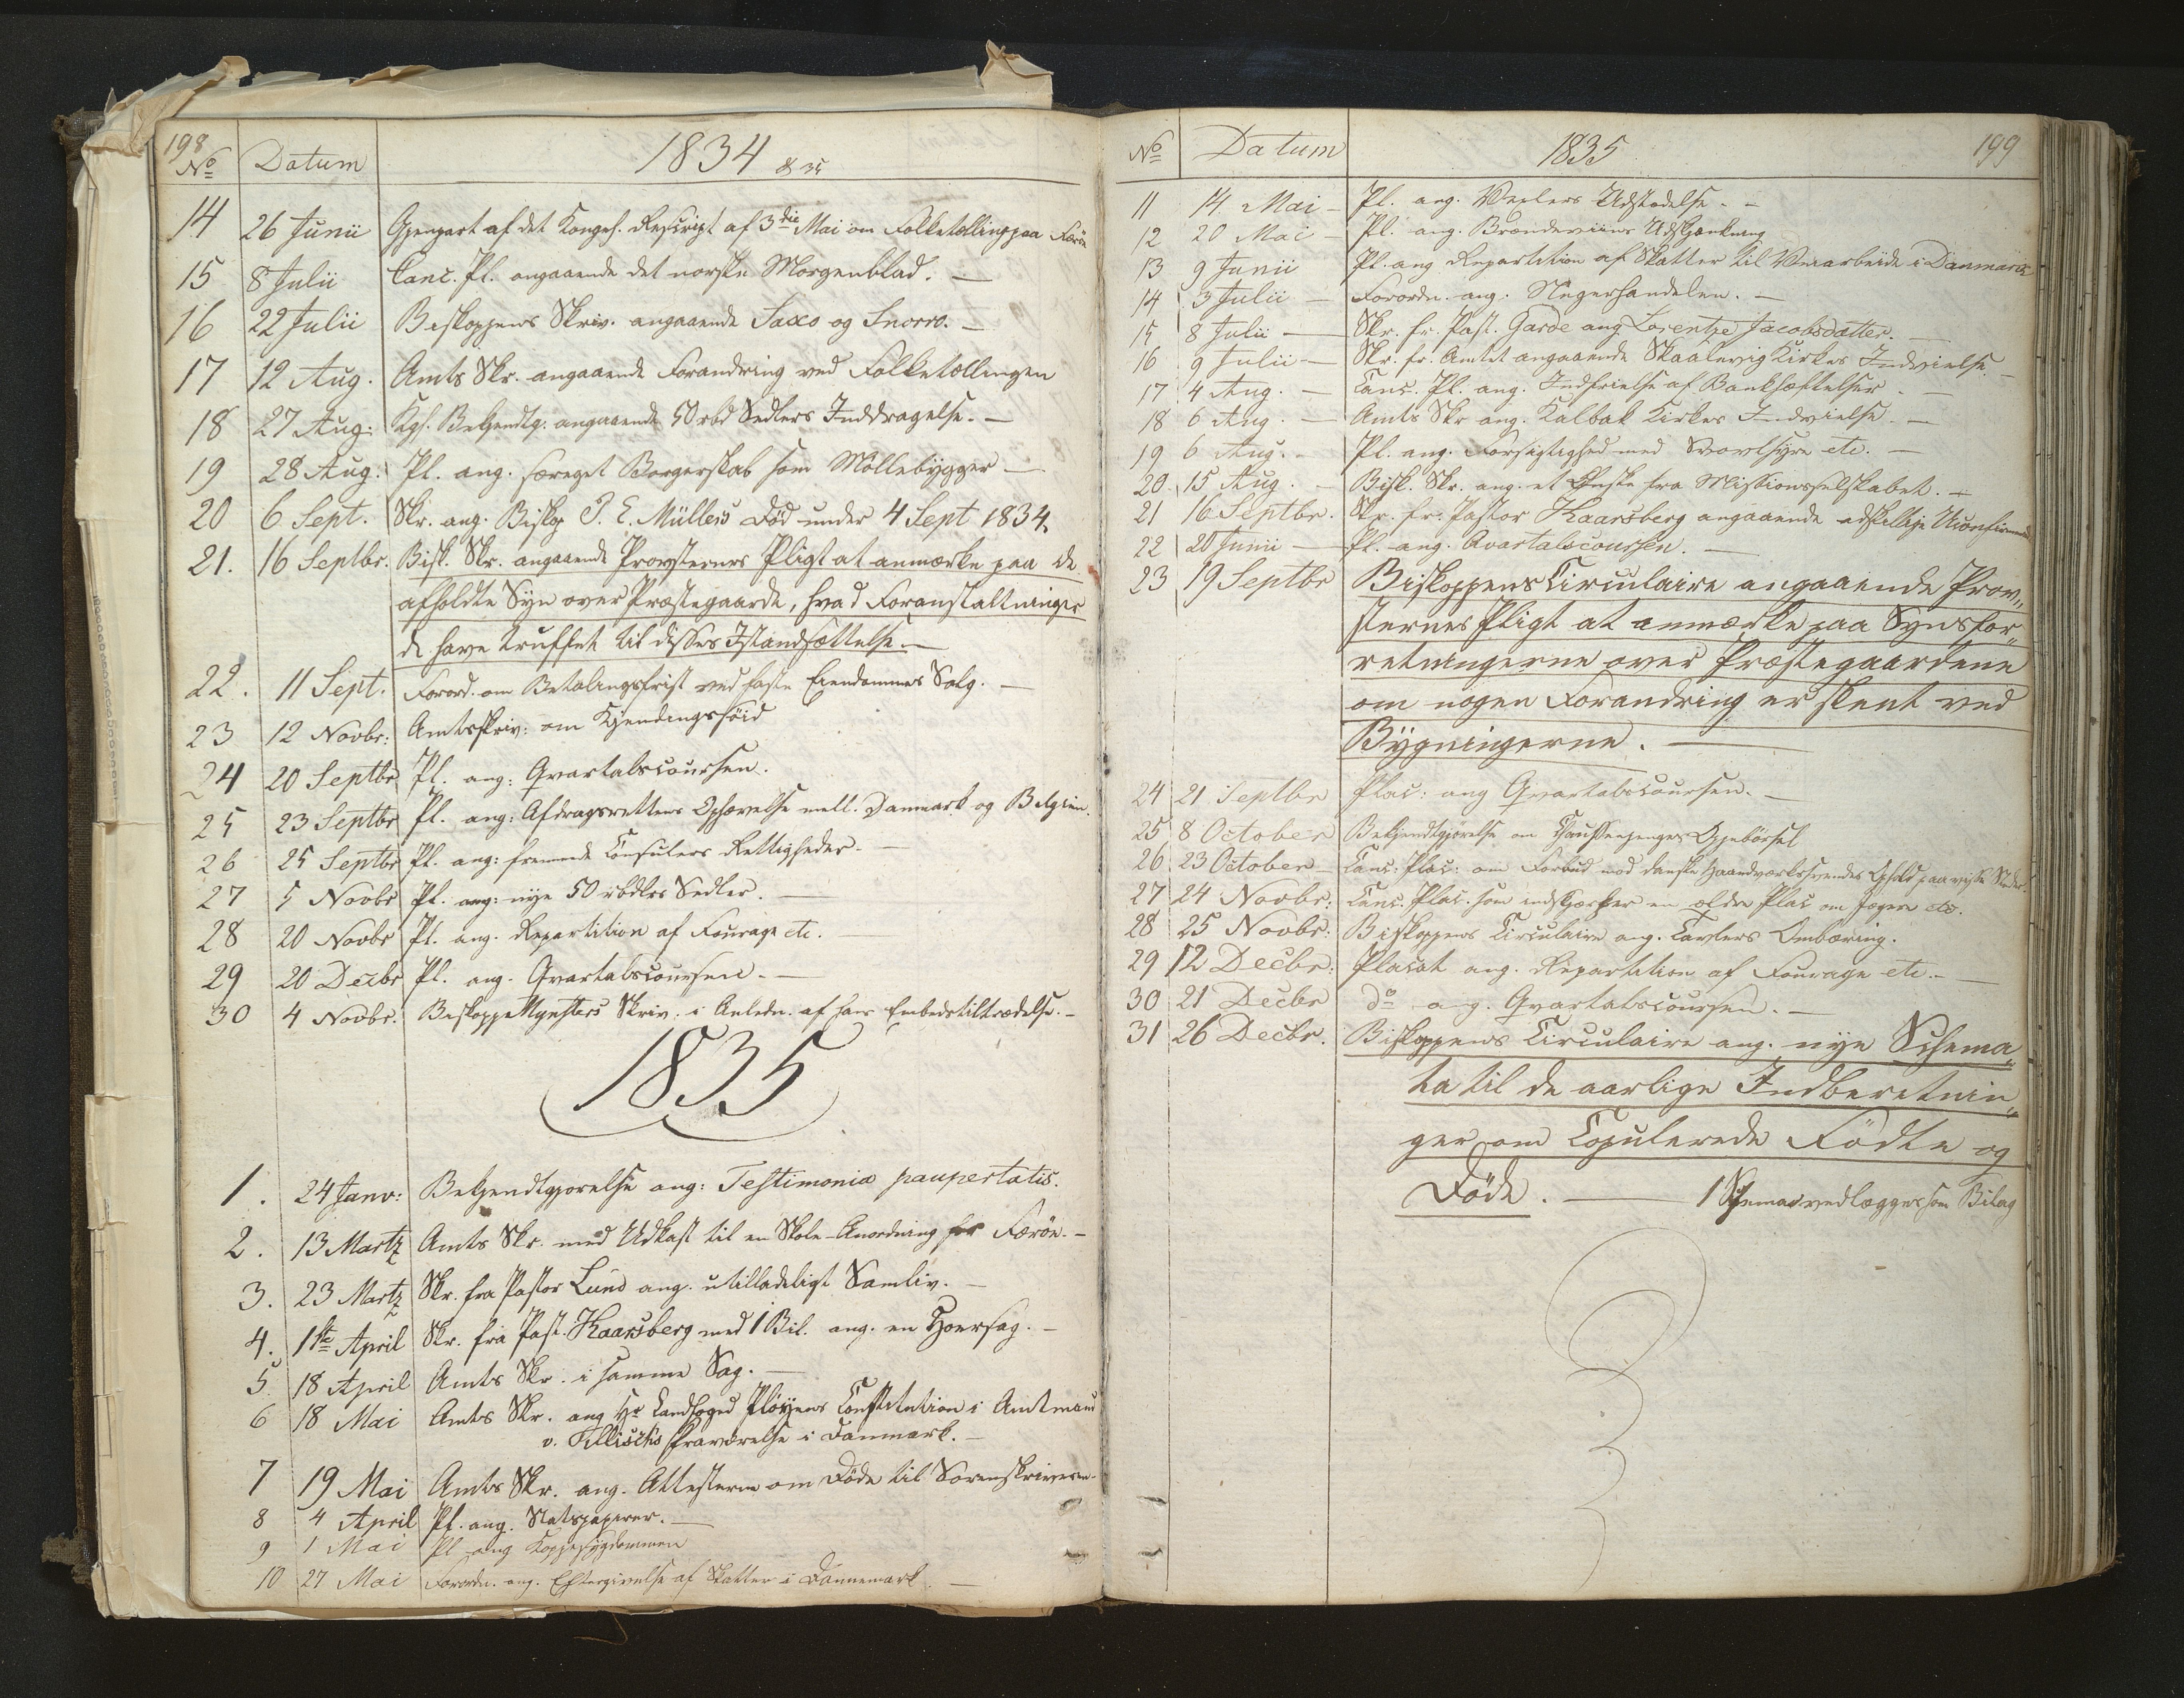 198
No Datum 1834 & 35
14 26 Junii Gjenpart af det Kongel. Rescript af 3die Mai om Folketælling paa Færöe
15 8 Julii Canc. Pl. angaaende det norske Morgenblad. —
16 22 Julii Biskoppens Skriv. angaaende Saxo og Snorro. —
17 12 Aug. Amts Skr. angaaende Forandring ved Folketællingen
18 27 Aug: Kgl. Bekjendtg: angaaende 50 rbd Sedlers Inddragelse. —
19 28 Aug: Pl. ang. særeget Borgerskab som Möllebÿgger —
20 6 Sept. Skr. ang. Biskop P. E. Müllers Död under 4 Sept 1834.
21. 16 Septbr. Bisk. Skr. angaaende Provsternes Pligt at anmærke paa de
afholdte Syn over Præstegaarde, hvad Foranstaltninger
de have truffet til disses Istandsættelse. —
22. 11 Sept. Forord. om Betalingsfrist ved faste Eiendommes Salg. —
23 12 Novbr: Amtsskriv: om Kjendingssöid
24 20 Septbr Pl. ang: Qvartalscoursen.
25 23 Septbr Pl. ang: Afdragsrettens Ophævelse mell. Danmark og Belgien.
26 25 Septbr Pl. ang: fremmede Consulers Rettigheder. —
27 5 Novbr Pl. ang: nye 50 rbdlrs Sedler. —
28 20 Novbr Pl. ang. Repartition af Fourage etc. —
29 20 Decbr Pl. ang. Qvartalscoursen. —
30 4 Novbr. Biskopp Mynsters Skriv. i Anledn. af hans Embedstiltrædelse. —
1835
1. 24 Janv: Bekjendtgjorelse ang: Testimonia paupertatis.
2. 13 Martz Amts Skr. med Udkast til en Skole-Anordning for Færöe. —
3. 23 Martz Skr. fra Pastor Lund ang. utilladeligt Samliv. —
4. 1ste April Skr. fra Past. Haarsberg med 1 Bil. ang. en Hoersag. —
5. 18 April Amts Skr. i samme Sag. —
6 18 Mai Amts Skr. ang Hr Landfoged Pløyens Constitution i Amtmand
v. Tillisch's Fraværelse i Danmark. —
7 19 Mai Amts Skr. ang. Attesterne om Döde til Sorenskriveren.
8 4 April Pl. ang. Statspapirer. —
9 1 Mai Pl ang Koppesygdommen
10 27 Mai Forordn. ang. Eftergivelse af Skatter i Dannemark —
No Datum 1835 199
11 14 Mai — Pl. ang. Vexlers Udstedelse. —
12 20 Mai — Pl. ang. Brændeviins Udskjænkning
13 9 Junii Pl. ang Repartition af Skatter til Veiarbeide i Danmark
14 3 Julii — Forordn. ang. Negerhandelen. —
15 8 Julii — Skr. fr. Past. Garde ang Lorentze Jacobsdatter. —
16 9 Julii — Skr. fr. Amtet angaaende Skaalevig Kirkes Indvielse. —
17 4 Aug. — Canc. Pl. ang. Indfrielse af Bankhæftelser. —
18 6 Aug. — Amts Skr ang. Kalbak Kirkes Indvielse. —
19 6 Aug. — Pl. ang. Forsigtighed med Svovlsyre etc. —
20. 15 Aug. — Bisk. Skr. ang. et Ønske fra Missionsselskabet. —
21 16 Septbr. Skr. fr. Pastor Haarsberg angaaende adskillige Uconfirmerede
22 20 Junii — Pl. ang. Qvartalscoursen. —
23 19 Septbr Biskoppens Circulaire angaaende Prov„
sternes Pligt at anmærke paa Synsfor„
retningerne over Præstegaardene
om nogen Forandring er skeet ved
Bÿgningerne. —
24 21 Septbr Plac: ang Qvartalscoursen. —
25 8 October Bekjendtgjørelse om Chausseepenges Oppebörsel
26 23 October — Canc: Plac: om Forbud mod danske Haandværkssvendes Ophold paa visse Steder.
27 24 Novbr: Canc. Plac. som indskjærper en ældre Plac om Jøgere etc.
28 25 Novbr: Biskoppens Circulaire ang. Tavlers Ombæring.
29 12 Decbr: Placat ang. Repartition af Fourage etc. —
30 21 Decbr do ang. Qvartalscoursen. —
31 26 Decbr. Biskoppens Circulaire ang. nye Schema„
ta til de aarlige Indberetnin„
ger om Copulerede Födte og
Döde. — 1 Schema vedlægges som Bilag